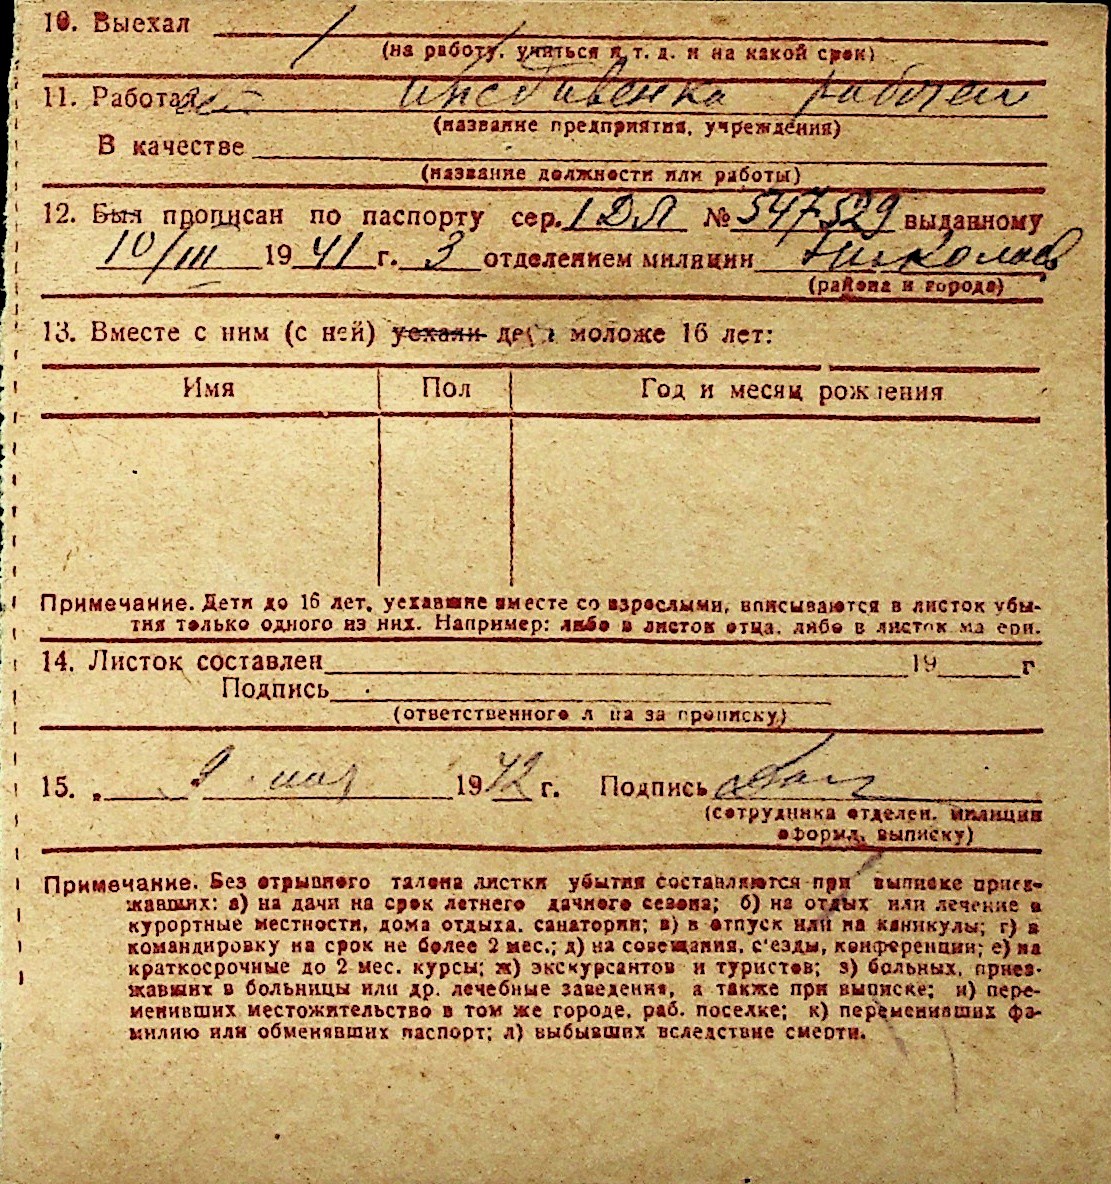 10. Выехал
(на работу, учиться и т. д. и на какой срок)
11. Работал иждивенка рабочего
(название предприятия, учреждения)
В качестве
(название должности или работы)
12. Был прописан по паспорту сер. 1 ДЛ № 547529 выданному
10/III 1941 г. 3 отделением милиции Николаев
(района и города)
13. Вместе с ним (с ней) уехали дети моложе 16 лет:
Имя Пол Год и месяц рождения
Примечание. Дети до 16 лет, уехавшие вместе со взрослыми, вписываются в листок убы-
тия только одного из них. Например: либо в листок отца, либо в листок матери.
14. Листок составлен 19 г
Подпись
(ответственного лица за прописку)
15. „ 9 мая 1942 г. Подпись
(сотрудника отделен. милиции
оформл. выписку)
Примечание. Без отрывного талона листки убытия составляются при выписке приез-
жавших: а) на дачи на срок летнего дачного сезона; б) на отдых или лечение в
курортные местности, дома отдыха, санатории; в) в отпуск или на каникулы; г) в
командировку на срок не более 2 мес.; д) на совещания, с'езды, конференции; е) на
краткосрочные до 2 мес. курсы; ж) экскурсантов и туристов; з) больных, приез-
жавших в больницы или др. лечебные заведения, а также при выписке; и) пере-
менивших местожительство в том же городе, раб. поселке; к) переменивших фа-
милию или обменявших паспорт; л) выбывших вследствие смерти.